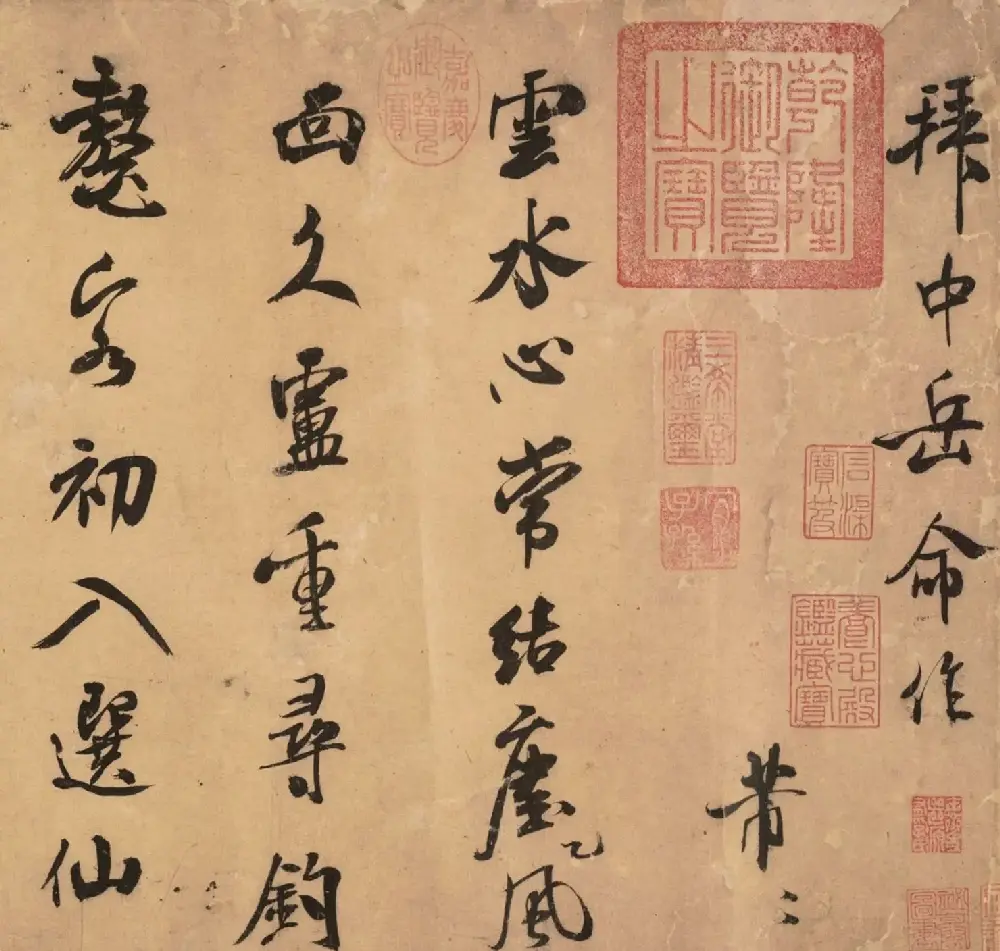 拜中岳命作
芾
雲水心常結塵風
面久盧重尋釣
鼇客初入選仙
乾隆御覽之寶
嘉慶御覽之寶
三希堂精鑑璽
宜子孫
石渠寶笈
養心殿鑑藏寶